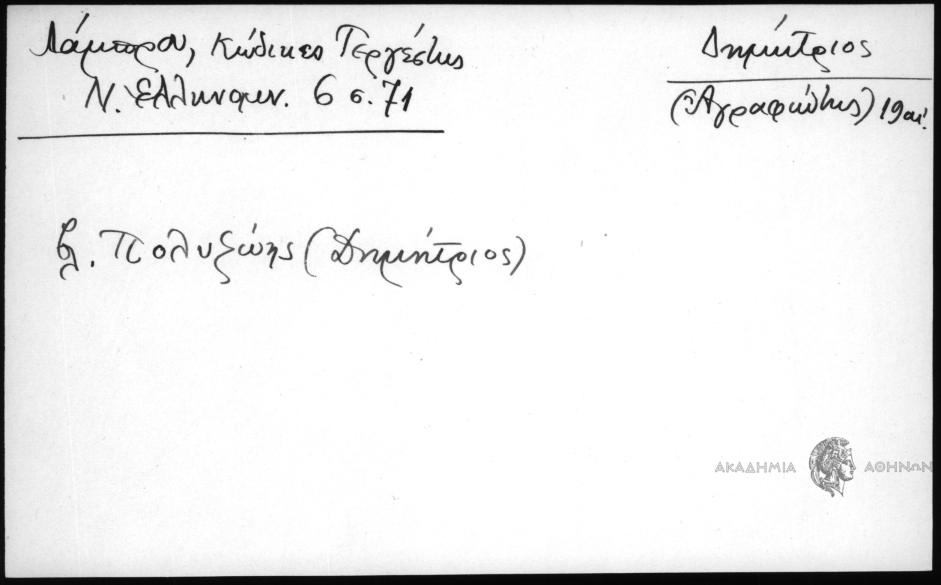 Λάμπρου, Κώδικες Τεργέστης
Ν. Ἑλληνομν. 6 σ. 71
Δημήτριος
(Ἀγραφιώτης) 19 αἰ.
βλ. Πολυζώης (Δημήτριος)
ΑΚΑΔΗΜΙΑ ΑΘΗΝΩΝ